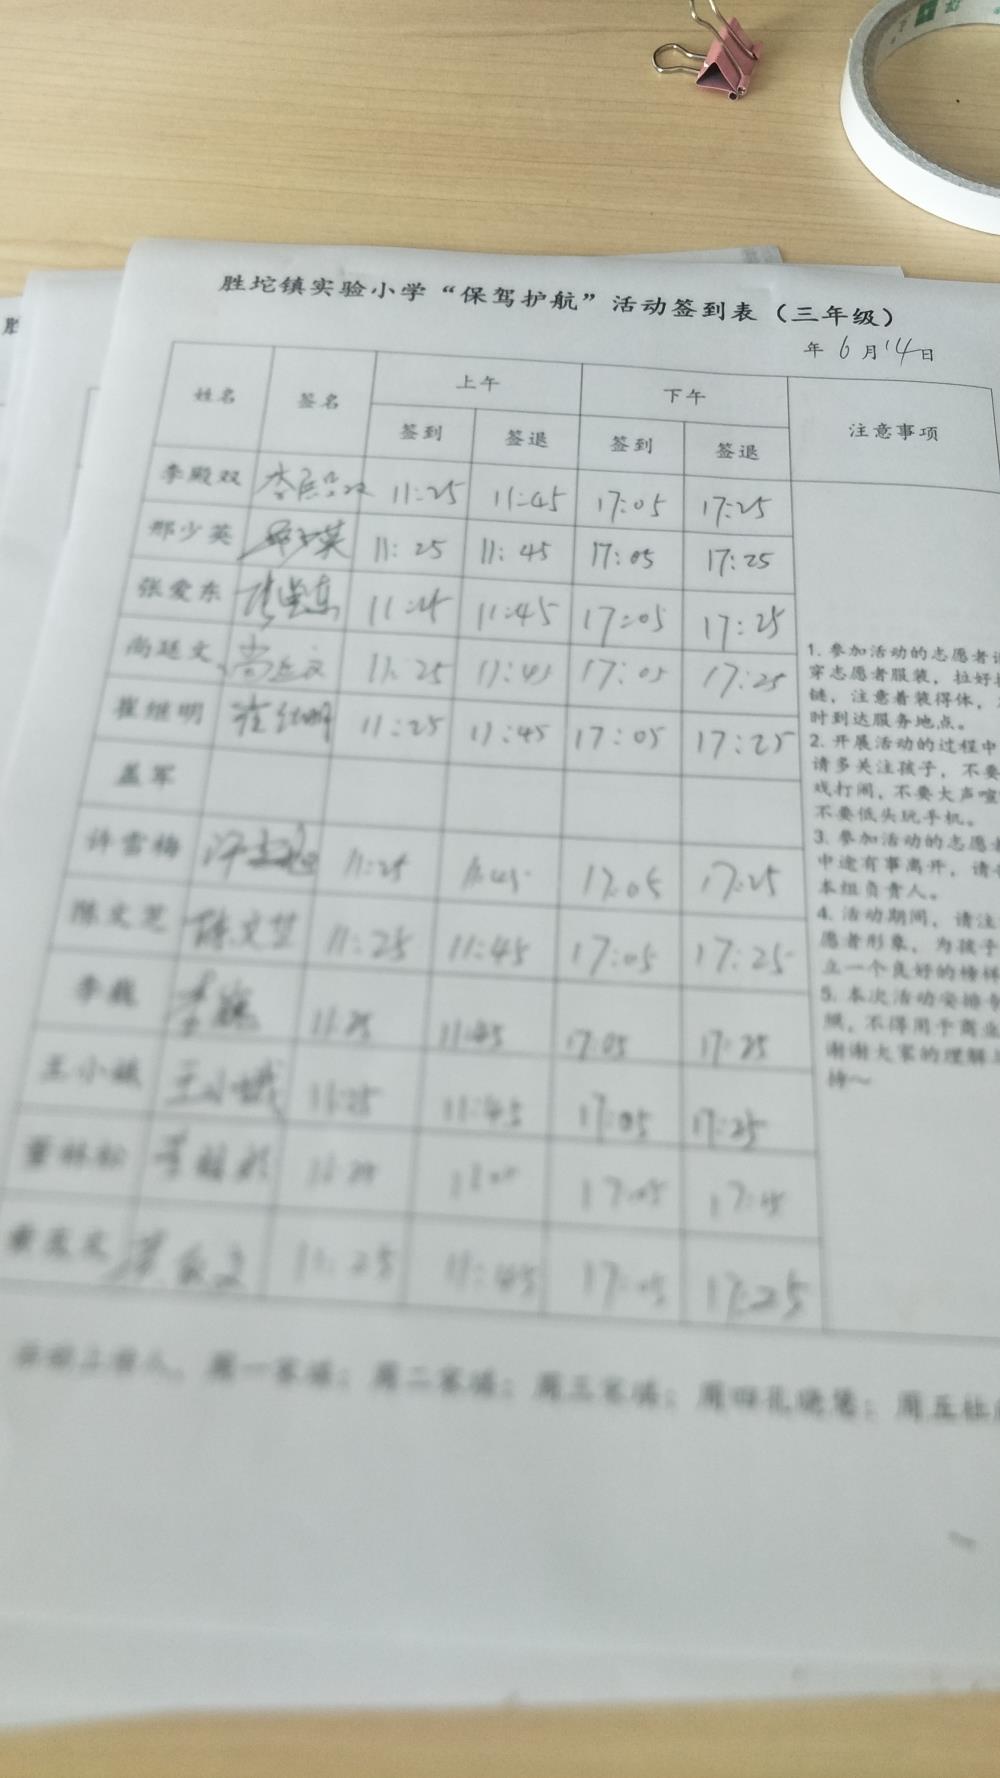 胜坨镇实验小学“保驾护航”活动签到表（三年级）
年 6月14日
姓名 签名 上午 下午 注意事项
签到 签退 签到 签退
李殿双 李殿双 11:25 11:45 17:05 17:25
邢少英 邢少英 11:25 11:45 17:05 17:25
张爱东 张爱东 11:25 11:45 17:05 17:25
尚廷文 尚廷文 11:25 11:45 17:05 17:25
崔继明 崔继明 11:25 11:45 17:05 17:25
盖军
许雪梅 许雪梅 11:25 11:45 17:05 17:25
陈文芝 陈文芝 11:25 11:45 17:05 17:25
李巍 李巍 11:25 11:45 17:05 17:25
王小娥 王小娥 11:25 11:45 17:05 17:25
11:25 17:05 17:25
11:25 11:45 17:05 17:25
1. 参加活动的志愿者
穿志愿者服装，拉好
链，注意着装得体，
时到达服务地点。
2. 开展活动的过程中
请多关注孩子，不要
戏打闹，不要大声喧
不要低头玩手机。
3. 参加活动的志愿者
中途有事离开，请
本组负责人。
4. 活动期间，请注
愿者形象，为孩子
立一个良好的榜样
5. 本次活动安排专
照，不得用于商业
谢谢大家的理解
持～
周一家；周二家；周三家；周四孔；周五杜